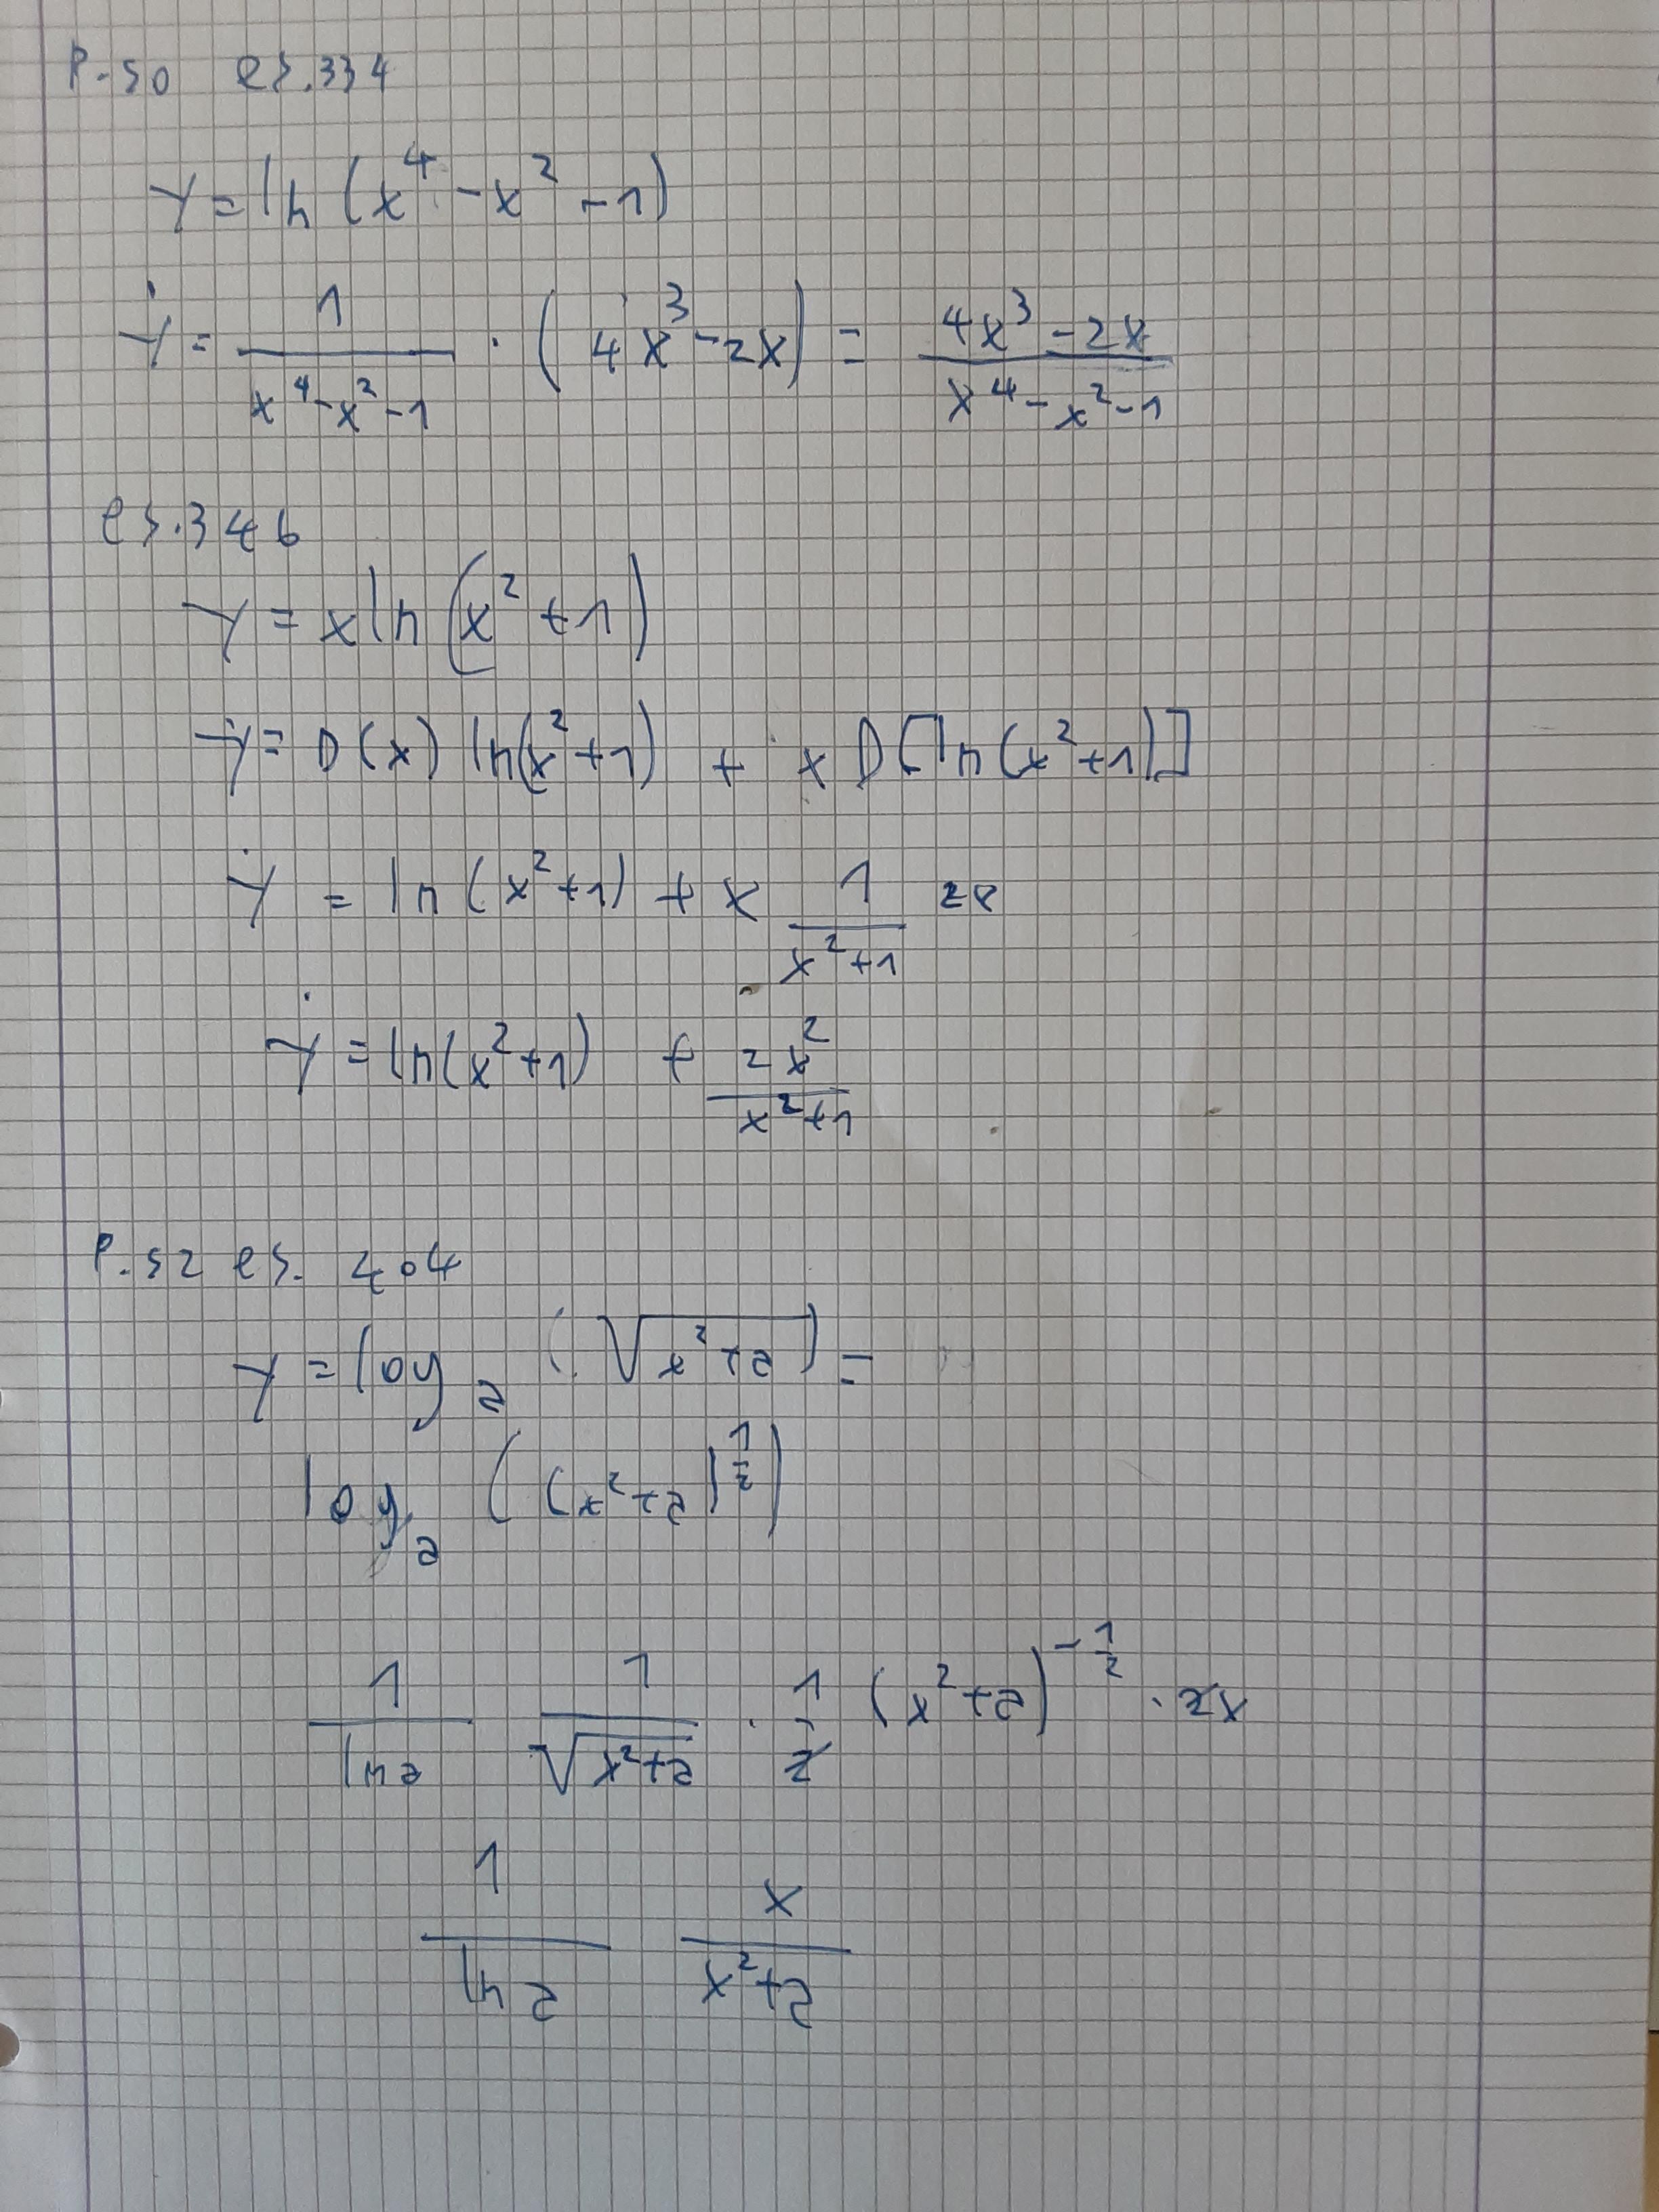 P.50 es.334
y = ln (x⁴ - x² - 1)
ẏ = 1/(x⁴ - x² - 1) · (4x³ - 2x) = (4x³ - 2x)/(x⁴ - x² - 1)
es.346
y = x ln (x² + 1)
ẏ = D(x) ln(x² + 1) + x D[ln(x² + 1)]
ẏ = ln (x² + 1) + x 1/(x² + 1) 2x
ẏ = ln(x² + 1) + 2x²/(x² + 1)
P.52 es. 404
y = log_a (√(x² + a)) =
log_a ((x² + a)^(1/2))
1/(ln a) 1/√(x² + a) · 1/2 (x² + a)^(-1/2) · 2x
1/(ln a) x/(x² + a)